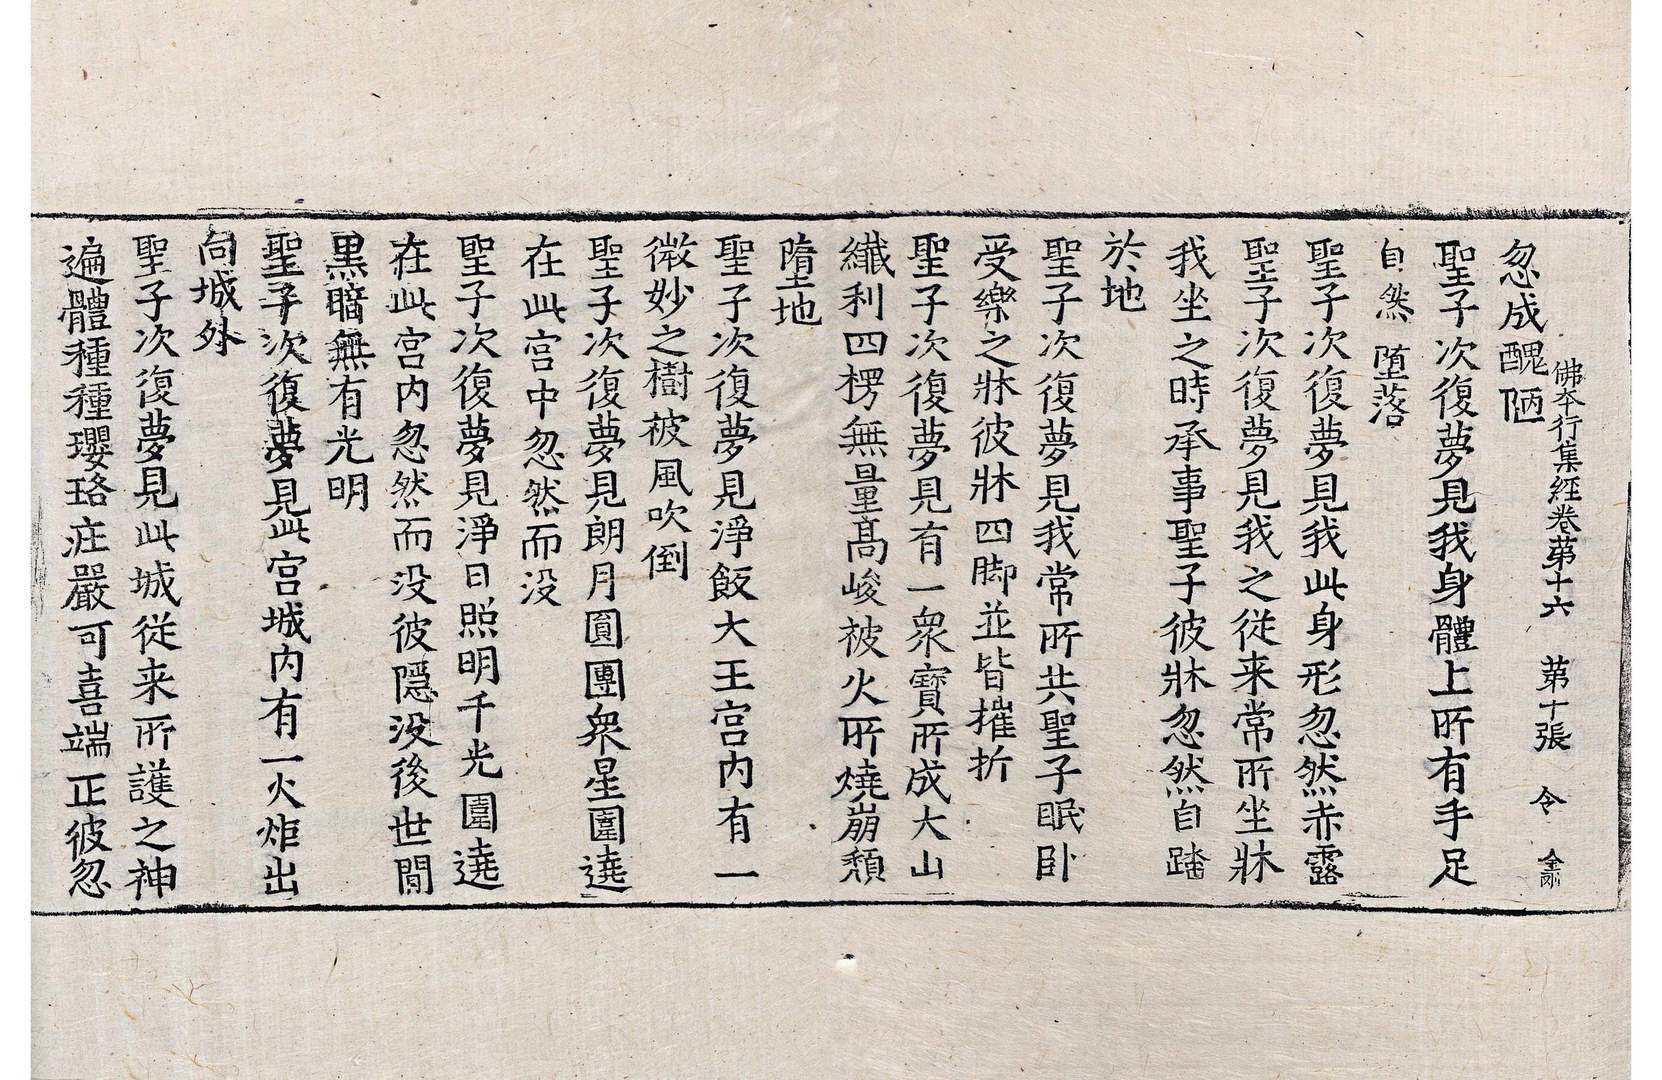 佛本行集經卷苐十六 苐十張 令 金剛
忽成醜陋
聖子次復夢見我身體上所有手足
自然墮落
聖子次復夢見我此身形忽然赤露
聖子次復夢見我之從来常所坐牀
我坐之時承事聖子彼牀忽然自踏
於地
聖子次復夢見我常所共聖子眠卧
受樂之牀彼牀四脚並皆摧折
聖子次復夢見有一衆寶所成大山
纖利四楞無量髙峻被火所燒崩頹
墮地
聖子次復夢見淨飯大王宫内有一
微妙之樹被風吹倒
聖子次復夢見朗月圓團衆星圍遶
在此宫中忽然而没
聖子次復夢見淨日照明千光圍遶
在此宫内忽然而没彼隱没後世間
黒暗無有光明
聖子次復夢見此宫城内有一火炬出
向城外
聖子次復夢見此城從来所護之神
遍體種種瓔珞庄嚴可喜端正彼忽